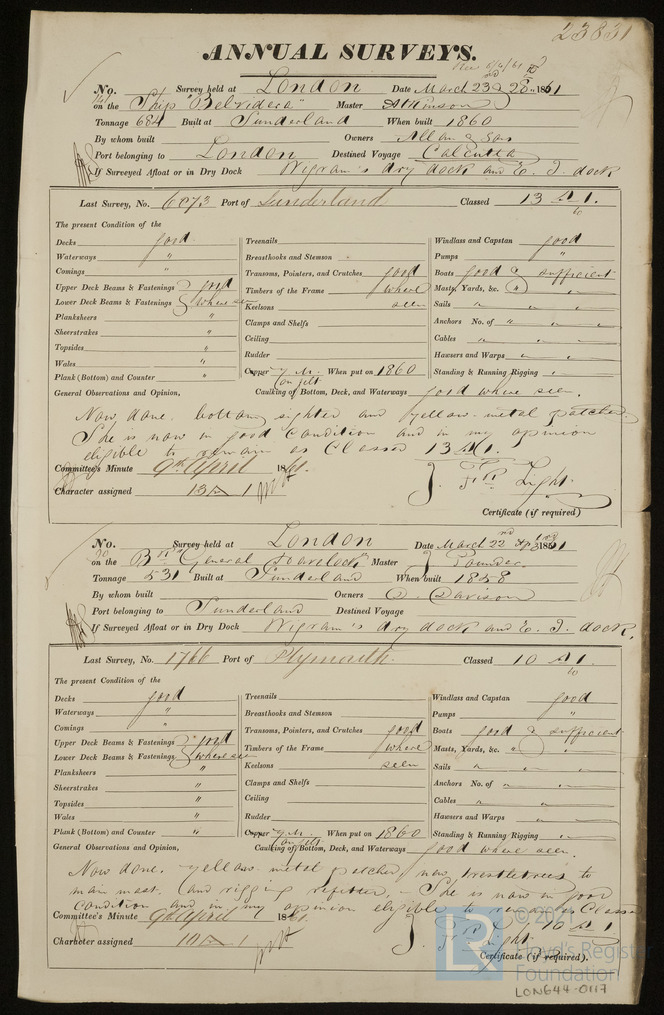 23831
ANNUAL SURVEYS.
No. Survey held at London Date March 23rd 28 1861
on the Ship "Belvidera" Master Atkinson
Tonnage 684 Built at Sunderland When built 1860
By whom built Owners Allan & Sons
Port belonging to London Destined Voyage Calcutta
If Surveyed Afloat or in Dry Dock Wigram's dry dock and E. I. dock
Last Survey, No. 6873 Port of Sunderland Classed 13 A 1.
The present Condition of the
Decks good
Waterways "
Comings "
Upper Deck Beams & Fastenings good
Lower Deck Beams & Fastenings where seen
Planksheers "
Sheerstrakes "
Topsides "
Wales "
Plank (Bottom) and Counter "
Treenails
Breasthooks and Stemson
Transoms, Pointers, and Crutches good
Timbers of the Frame where
Keelsons seen
Clamps and Shelfs
Ceiling
Rudder
Copper Y. M. When put on 1860
on felt
Windlass and Capstan good
Pumps "
Boats good & sufficient
Masts, Yards, &c. " "
Sails " " "
Anchors No. of " " "
Cables " " "
Hawsers and Warps " "
Standing & Running Rigging "
General Observations and Opinion, Caulking of Bottom, Deck, and Waterways good where seen.
Now done. bottom sighted and yellow metal patched.
She is now in good condition and in my opinion
eligible to remain as Classed 13 A 1.
Committee's Minute 9th April 1861.
Character assigned 13 A 1
J. Light.
Certificate (if required)
No. Survey held at London Date March 22nd 1861
on the Bn "General Havelock" Master J Pounder.
Tonnage 531 Built at Sunderland When built 1858
By whom built Owners D. Davison
Port belonging to Sunderland Destined Voyage
If Surveyed Afloat or in Dry Dock Wigram's dry dock and E. I. dock.
Last Survey, No. 1766 Port of Plymouth. Classed 10 A 1.
The present Condition of the
Decks good
Waterways "
Comings "
Upper Deck Beams & Fastenings good
Lower Deck Beams & Fastenings where seen
Planksheers "
Sheerstrakes "
Topsides "
Wales "
Plank (Bottom) and Counter "
Treenails
Breasthooks and Stemson
Transoms, Pointers, and Crutches good
Timbers of the Frame where
Keelsons seen
Clamps and Shelfs
Ceiling
Rudder
Copper Y. M. When put on 1860
on felt
Windlass and Capstan good
Pumps "
Boats good & sufficient
Masts, Yards, &c. " "
Sails " " "
Anchors No. of " " "
Cables " " "
Hawsers and Warps " "
Standing & Running Rigging "
General Observations and Opinion, Caulking of Bottom, Deck, and Waterways good where seen.
Now done. yellow metal patched, new trestletrees to
main mast. (and rigging refitted, - She is now in good
condition and in my opinion eligible to remain as Classed
10 A 1
Committee's Minute 9th April 1861.
Character assigned 10 A 1
J. Light.
Certificate (if required).
© 2021
LR
Lloyd's Register
Foundation
LON644-0117